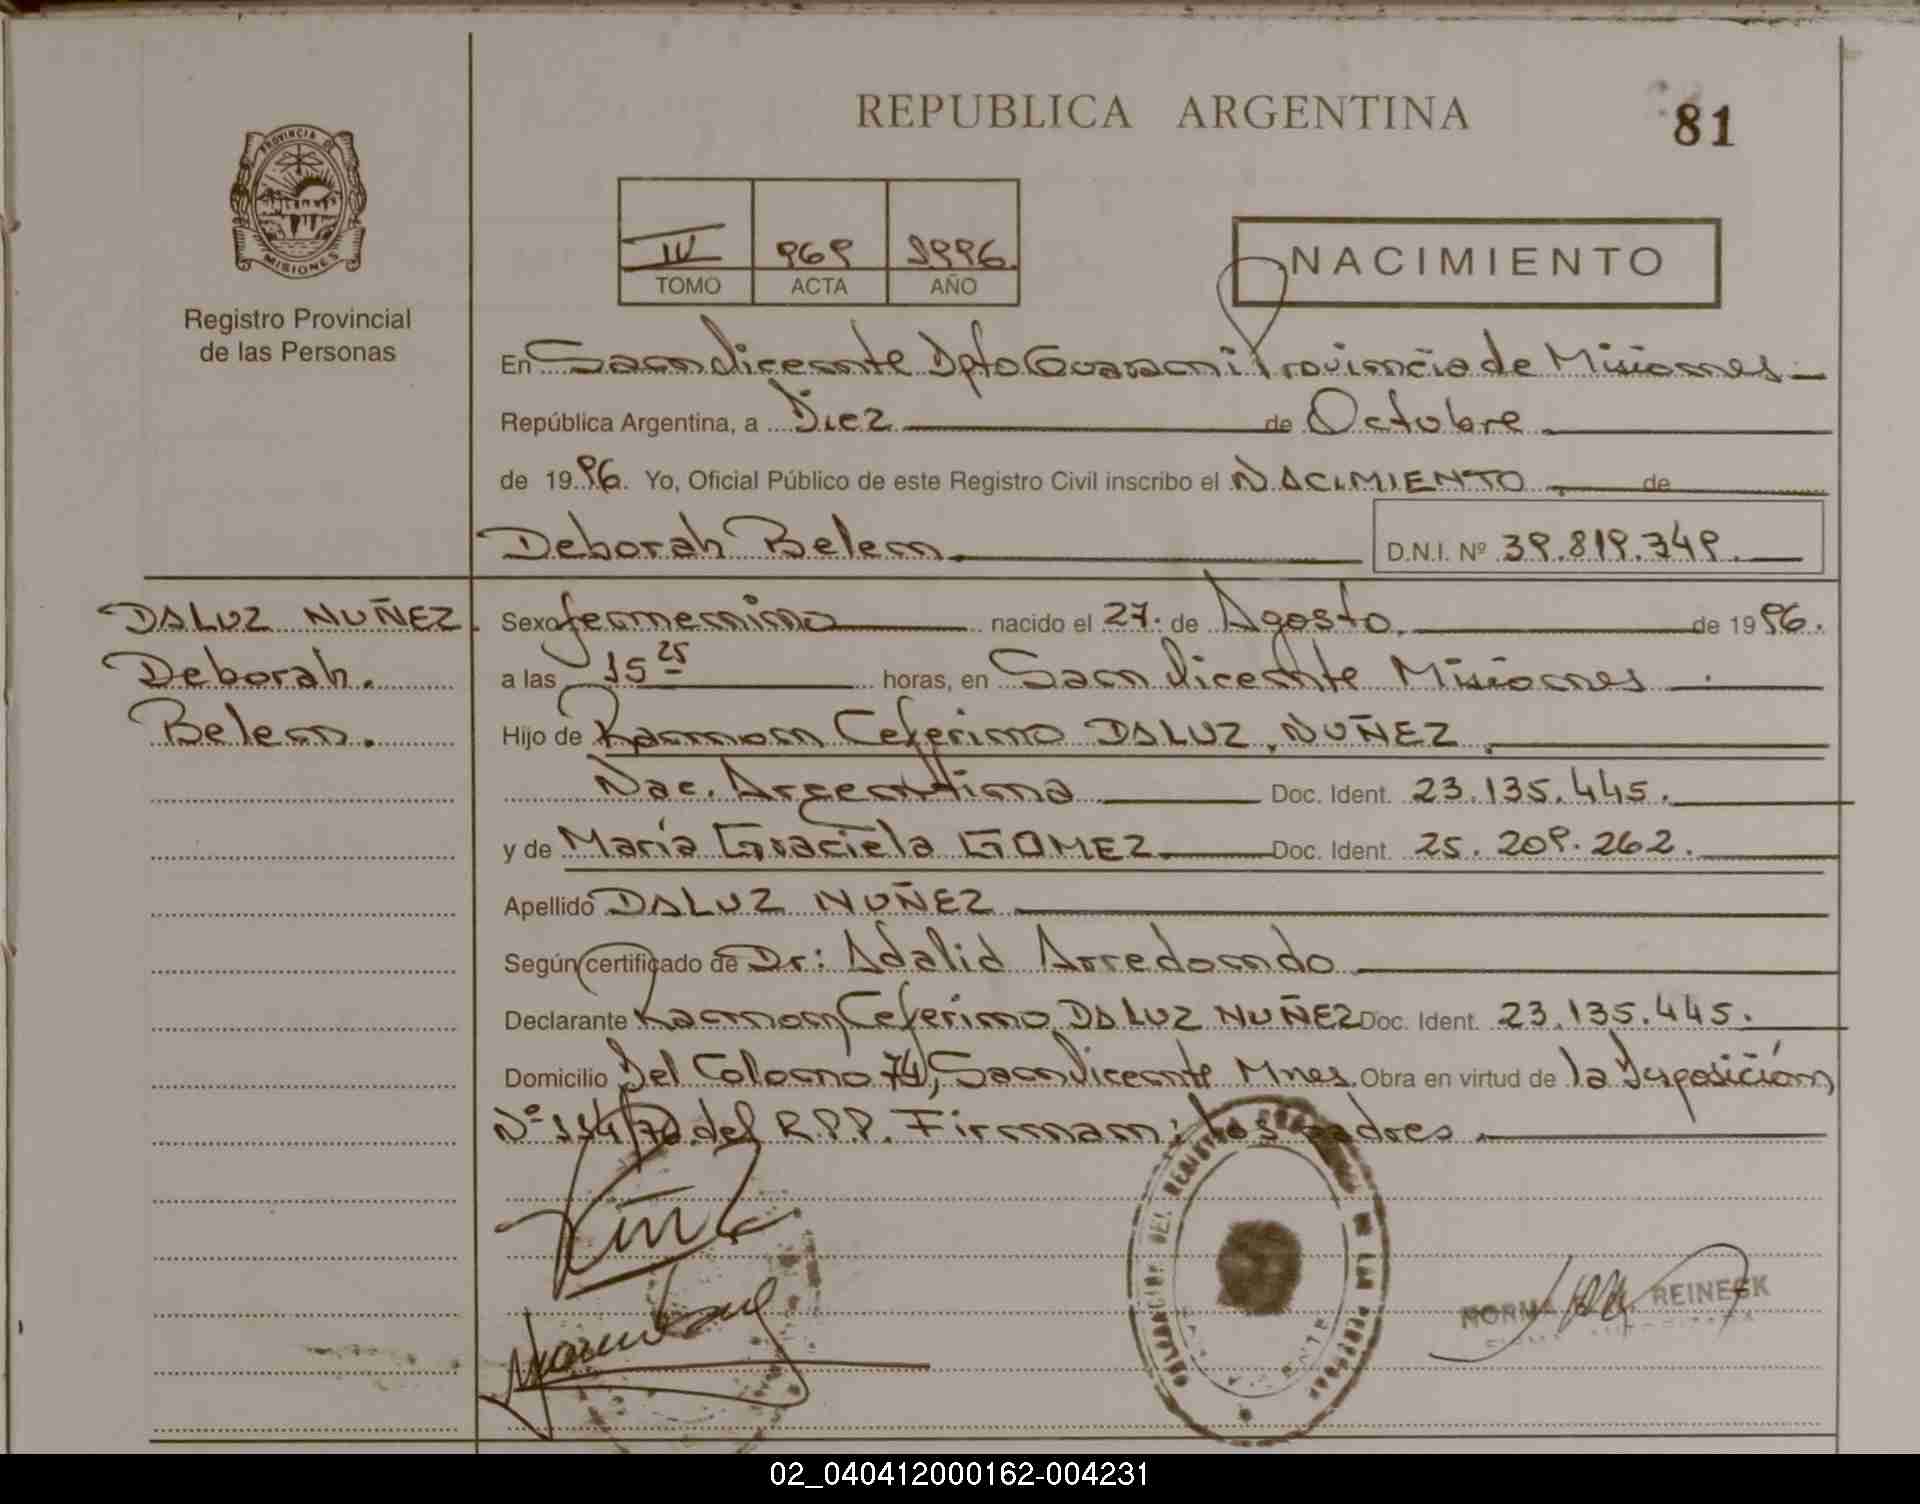 REPUBLICA ARGENTINA
81
PROVINCIA DE
MISIONES
Registro Provincial
de las Personas
IV 969 1996.
TOMO ACTA AÑO
NACIMIENTO
En San Vicente Dpto Guarani Provincia de Misiones
República Argentina, a Diez de Octubre
de 1996. Yo, Oficial Público de este Registro Civil inscribo el NACIMIENTO de
Deborah Belen. D.N.I. Nº 39.819.349.
DALUZ NUÑEZ
Deborah.
Belen.
Sexo femenino nacido el 27. de Agosto. de 1996.
a las 15 25 horas, en San Vicente Misiones
Hijo de Ramon Ceferino DALUZ NUÑEZ
Nac. Argentina Doc. Ident. 23.135.445.
y de María Graciela GOMEZ Doc. Ident. 25.209.262.
Apellido DALUZ NUÑEZ
Según certificado de Dr: Adalid Arredondo
Declarante Ramon Ceferino DALUZ NUÑEZ Doc. Ident. 23.135.445.
Domicilio Del Colono 74, San Vicente Mnes. Obra en virtud de la Disposición
Nº 114/70 del R.P.P. Firman: los padres
NORMA REINECK
02_040412000162-004231